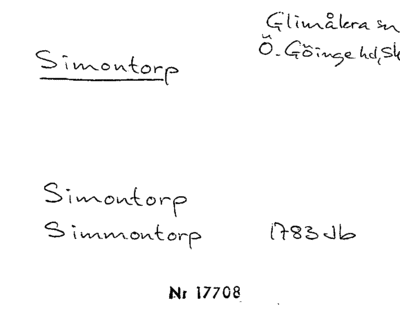 Glimåkra sn
Simontorp
Ö. Göinge hd, Sk
Simontorp
Simmontorp 1783 Jb
Nr 17708